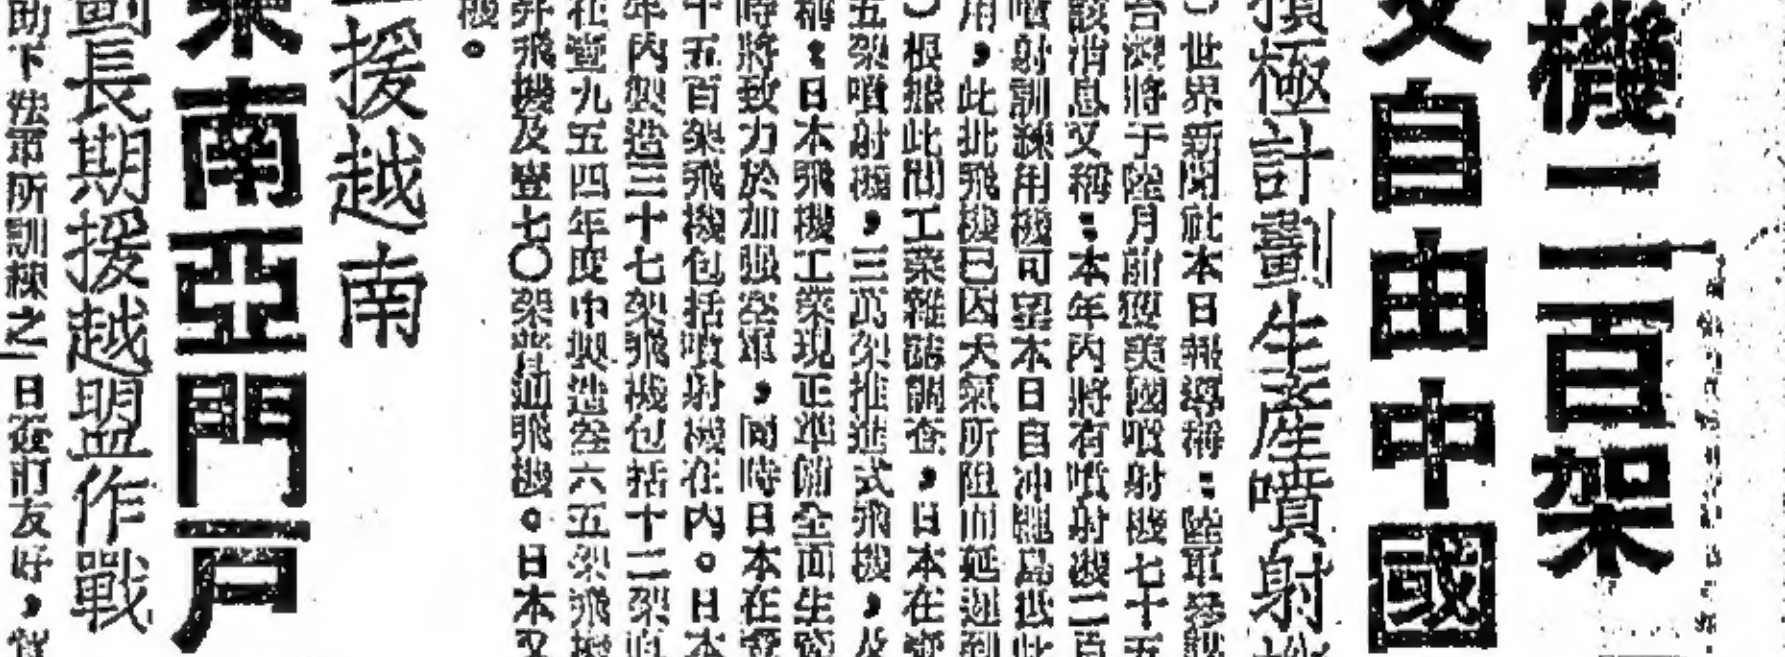 機二百架
自由中國
積極計劃生產噴射機
世界新聞社本日報導稱：陸軍參謀
台灣將于陸月前獲美國噴射機七十五
該消息又稱：本年內將有噴射機二百
噴射訓練用機可望本日自沖繩島抵此
用，此批飛機已因天氣所阻而延遲到
）根據此間工業雜誌調查，日本在
五架噴射機，三萬架推進式飛機，及
稱：日本飛機工業現正準備全面生產
時將致力於加強空軍，同時日本在
十五百架飛機包括噴射機在內。日本
年內製造三十七架飛機包括十二架
在壹九五四年度中製造叁六五架飛機
昇飛機及壹七〇架普通飛機。日本又
機。
援越南
東南亞門戶
劃長期援越盟作戰
助下法軍所訓練之一日近前友好，